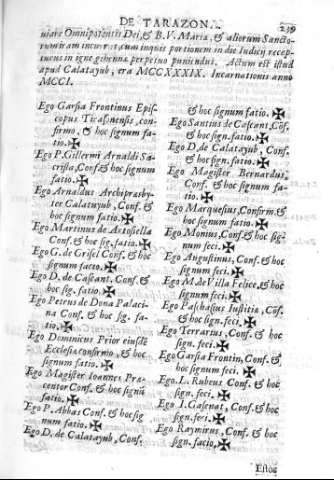 DE TARAZON.
239
uiam Omnipotentis Dei, & B. V. Maria, & aliorum Sancto-
rum iram incurrat, cum iniquis portionem in die Iudicij recep-
turus in igne gehenna perpetuo puniendus. Actum est istud
apud Calatayub, era MCCXXXIX. Incarnationis anno
MCCI.
Ego Garsia Frontinus Epis-
copus Tirasonensis, con-
firmo, & hoc signum fa-
tio.
Ego P. Gillermi Arnaldi Sa-
crista, Conf. & hoc signum
fatio.
Ego Arnaldus Archipresby-
ter Calatuyub, Conf. &
hoc signum fatio.
Ego Martinus de Antosiella
Conf. & hoc sig. fatio.
Ego G. de Grisel Conf. & hoc
signum facto.
Ego D. de Castant. Conf. &
hoc sig. fatio.
Ego Petrus de Dona Palaci-
na Conf. & hoc sig. fa-
tio.
Ego Dominicus Prior eiusdē
Ecclesia confirmo, & hoc
signum fatio.
Ego Magister Ioannes Pra-
centor Conf. & hoc signū
fatio.
Ego P. Abbas Conf. & hoc sig
num fatio.
Ego D. de Calatayub, Conf.
& hoc signum fatio.
Ego Santius de Cascant, Cōf.
& hoc sign. fatio.
Ego D. de Calatayub, Conf.
& hoc sign. fatio.
Ego Magister Bernardus,
Conf. & hoc signum fa-
tio.
Ego Marquesius, Confirm. &
hoc signum fatio.
Ego Monius, Conf. & hoc sig-
num feci.
Ego Augustinus, Conf. & hoc
signum feci.
Ego M. de Villa Felice, & hoc
signum feci.
Ego Paschasius Iustitia, Cōf.
& hoc sign. feci.
Ego Terrartus, Conf. & hoc
sign. feci.
Ego Garsia Frontin, Conf. &
hoc sign. feci.
Ego L. Rubeus Conf. & hoc
sign. feci.
Ego I. Gasenat, Conf. & hoc
sign. feci.
Ego Raymirus, Conf. & hoc
sign. facio,
Estos